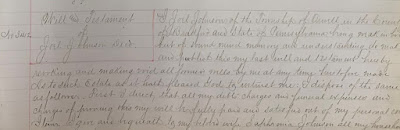 Will & Testament
of
Jost Johnson Decd.
I Jost Johnson of the Township of in the County
of and State of Pennsylvania being weak in body
but of sound mind memory and understanding do make
and publish this my last will and testament hereby
revoking and making void all former wills by me at any time heretofore made
As to such estate as it hath pleased God to intrust me I dispose of the same
as follows. First I direct that all my debts charges and funeral expenses and
charges of proving this my will be fully paid and satisfied out of my personal
Item I give and bequeath to my beloved wife Johnson all my household